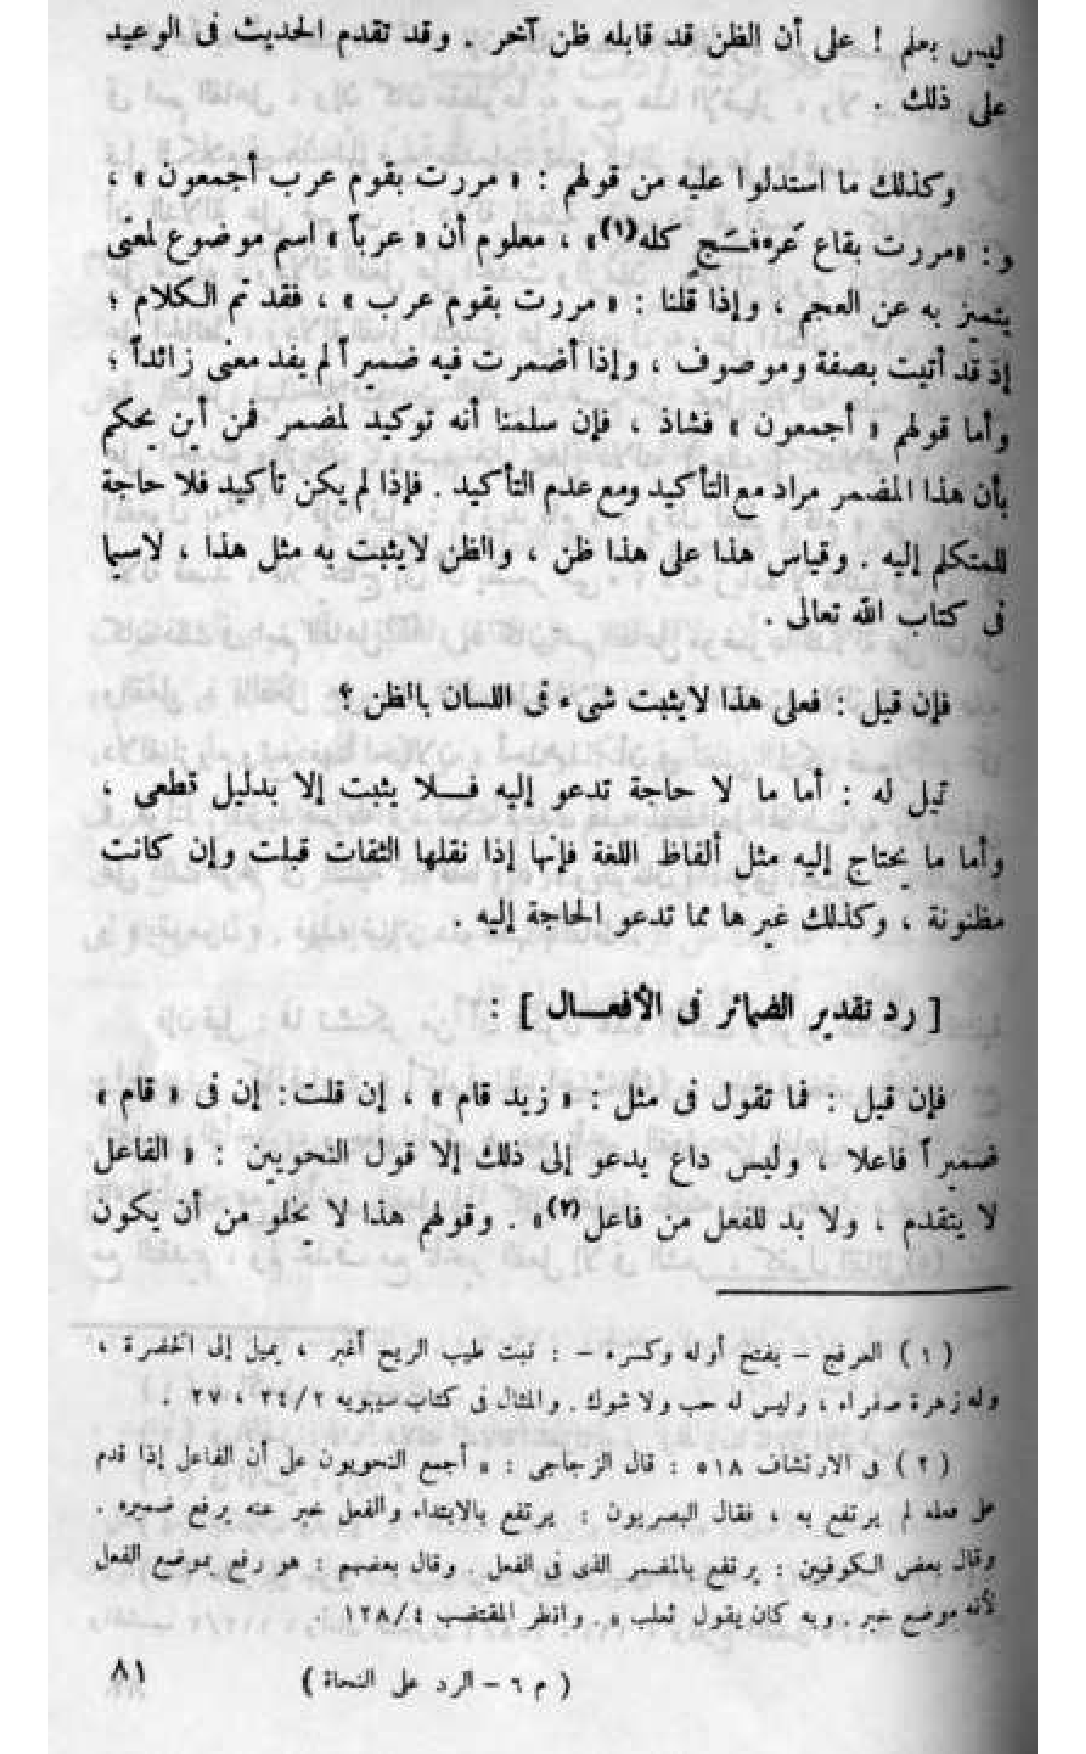 ليس بعلم ! على أن الظن قد قابله ظن آخر . وقد تقدم الحديث فى الوعيد
على ذلك .
وكذلك ما استدلوا عليه من قولهم : « مررت بقوم عرب أجمعون » ،
و : «مررت بقاع عَرفَج كله(١)» ، معلوم أن « عرباً » اسم موضوع لمعنى
يتميز به عن العجم ، وإذا قلنا : « مررت بقوم عرب » ، فقد تم الكلام ؛
إذ قد أتيت بصفة وموصوف ، وإذا أضمرت فيه ضميراً لم يفد معنى زائداً ؛
وأما قولهم « أجمعون » فشاذ ، فإن سلمنا أنه توكيد لمضمر فمن أين يحكم
بأن هذا المضمر مراد مع التأكيد ومع عدم التأكيد . فإذا لم يكن تأكيد فلا حاجة
للمتكلم إليه . وقياس هذا على هذا ظن ، والظن لايثبت به مثل هذا ، لاسيما
فى كتاب الله تعالى .
فإن قيل : فعلى هذا لايثبت شىء فى اللسان بالظن ؟
قيل له : أما ما لا حاجة تدعو إليه فــلا يثبت إلا بدليل قطعى ،
وأما ما يحتاج إليه مثل ألفاظ اللغة فإنها إذا نقلها الثقات قبلت وإن كانت
مظنونة ، وكذلك غيرها مما تدعو الحاجة إليه .
[ رد تقدير الضمائر فى الأفعـــال ] :
فإن قيل : فما تقول فى مثل : « زيد قام » ، إن قلت : إن فى « قام »
ضميراً فاعلا ، وليس داع يدعو إلى ذلك إلا قول النحويين : « الفاعل
لا يتقدم ، ولا بد للفعل من فاعل(٢)» . وقولهم هذا لا يخلو من أن يكون
( ١ ) العرفج – بفتح أوله وكسره – : نبت طيب الريح أغبر ، يميل إلى الخضرة ،
وله زهرة صفراء ، وليس له حب ولا شوك . والمثال فى كتاب سيبويه ٢/ ٢٤ ، ٢٧ .
( ٢ ) فى الارتشاف ٥١٨ : قال الزجاجى : « أجمع النحويون على أن الفاعل إذا قدم
على فعله لم يرتفع به ، فقال البصريون : يرتفع بالابتداء والفعل خبر عنه يرفع ضميره .
وقال بعض الكوفيين : يرتفع بالمضمر الذى فى الفعل . وقال بعضهم : هو رفع بموضع الفعل
لأنه موضع خبر . وبه كان يقول ثعلب » . وانظر المقتضب ٤/ ١٢٨ .
( م ٦ – الرد على النحاة ) ٨١